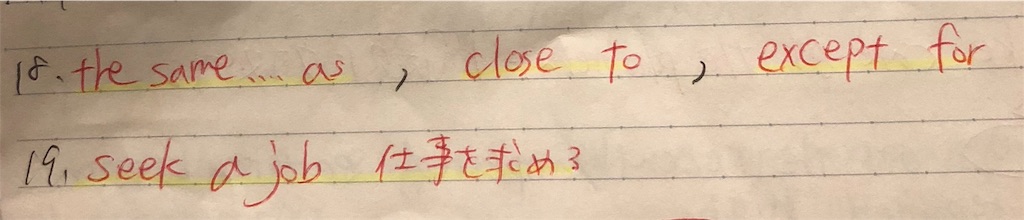 18. the same... as , close to , except for
19. seek a job 仕事を求める